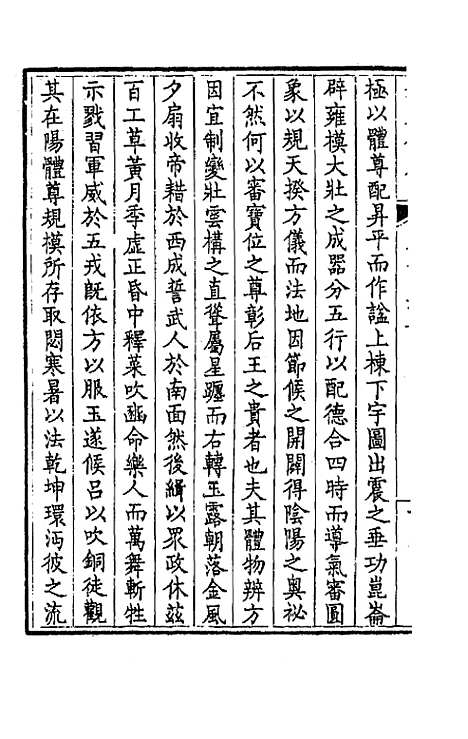 極以體尊配昇平而作謐上棟下宇圖出震之垂功崑崙
辟雍模大壯之成器分五行以配德合四時而導氣審圓
象以規天揆方儀而法地因節候之開闢得陰陽之奧祕
不然何以審寶位之尊彰后王之貴者也夫其體物辨方
因宜制變壯雲構之直聳屬星躔而右轉玉露朝落金風
夕扇收帝耤於西成誓武人於南面然後緝以眾政休茲
百工草黃月季虛正昏中釋菜吹豳命樂人而萬舞斬牲
示戮習軍威於五戎既依方以服玉遂候呂以吹銅徒觀
其在陽體尊規模所存取閟寒暑以法乾坤環沔彼之流